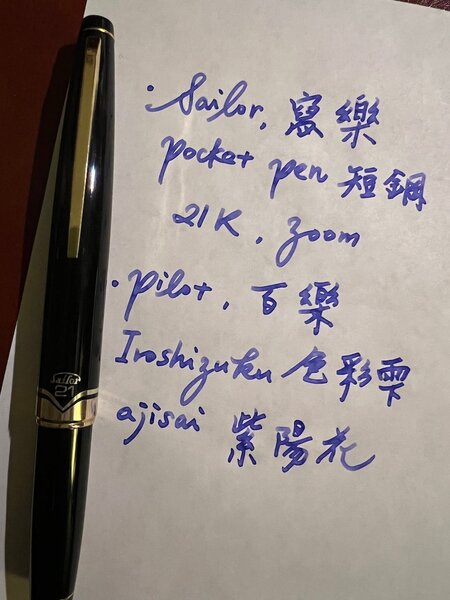 · Sailor, 寫樂
pocket pen 短鋼
21K, zoom
· pilot, 百樂
Iroshizuku 色彩雫
ajisai 紫陽花
Sailor
21